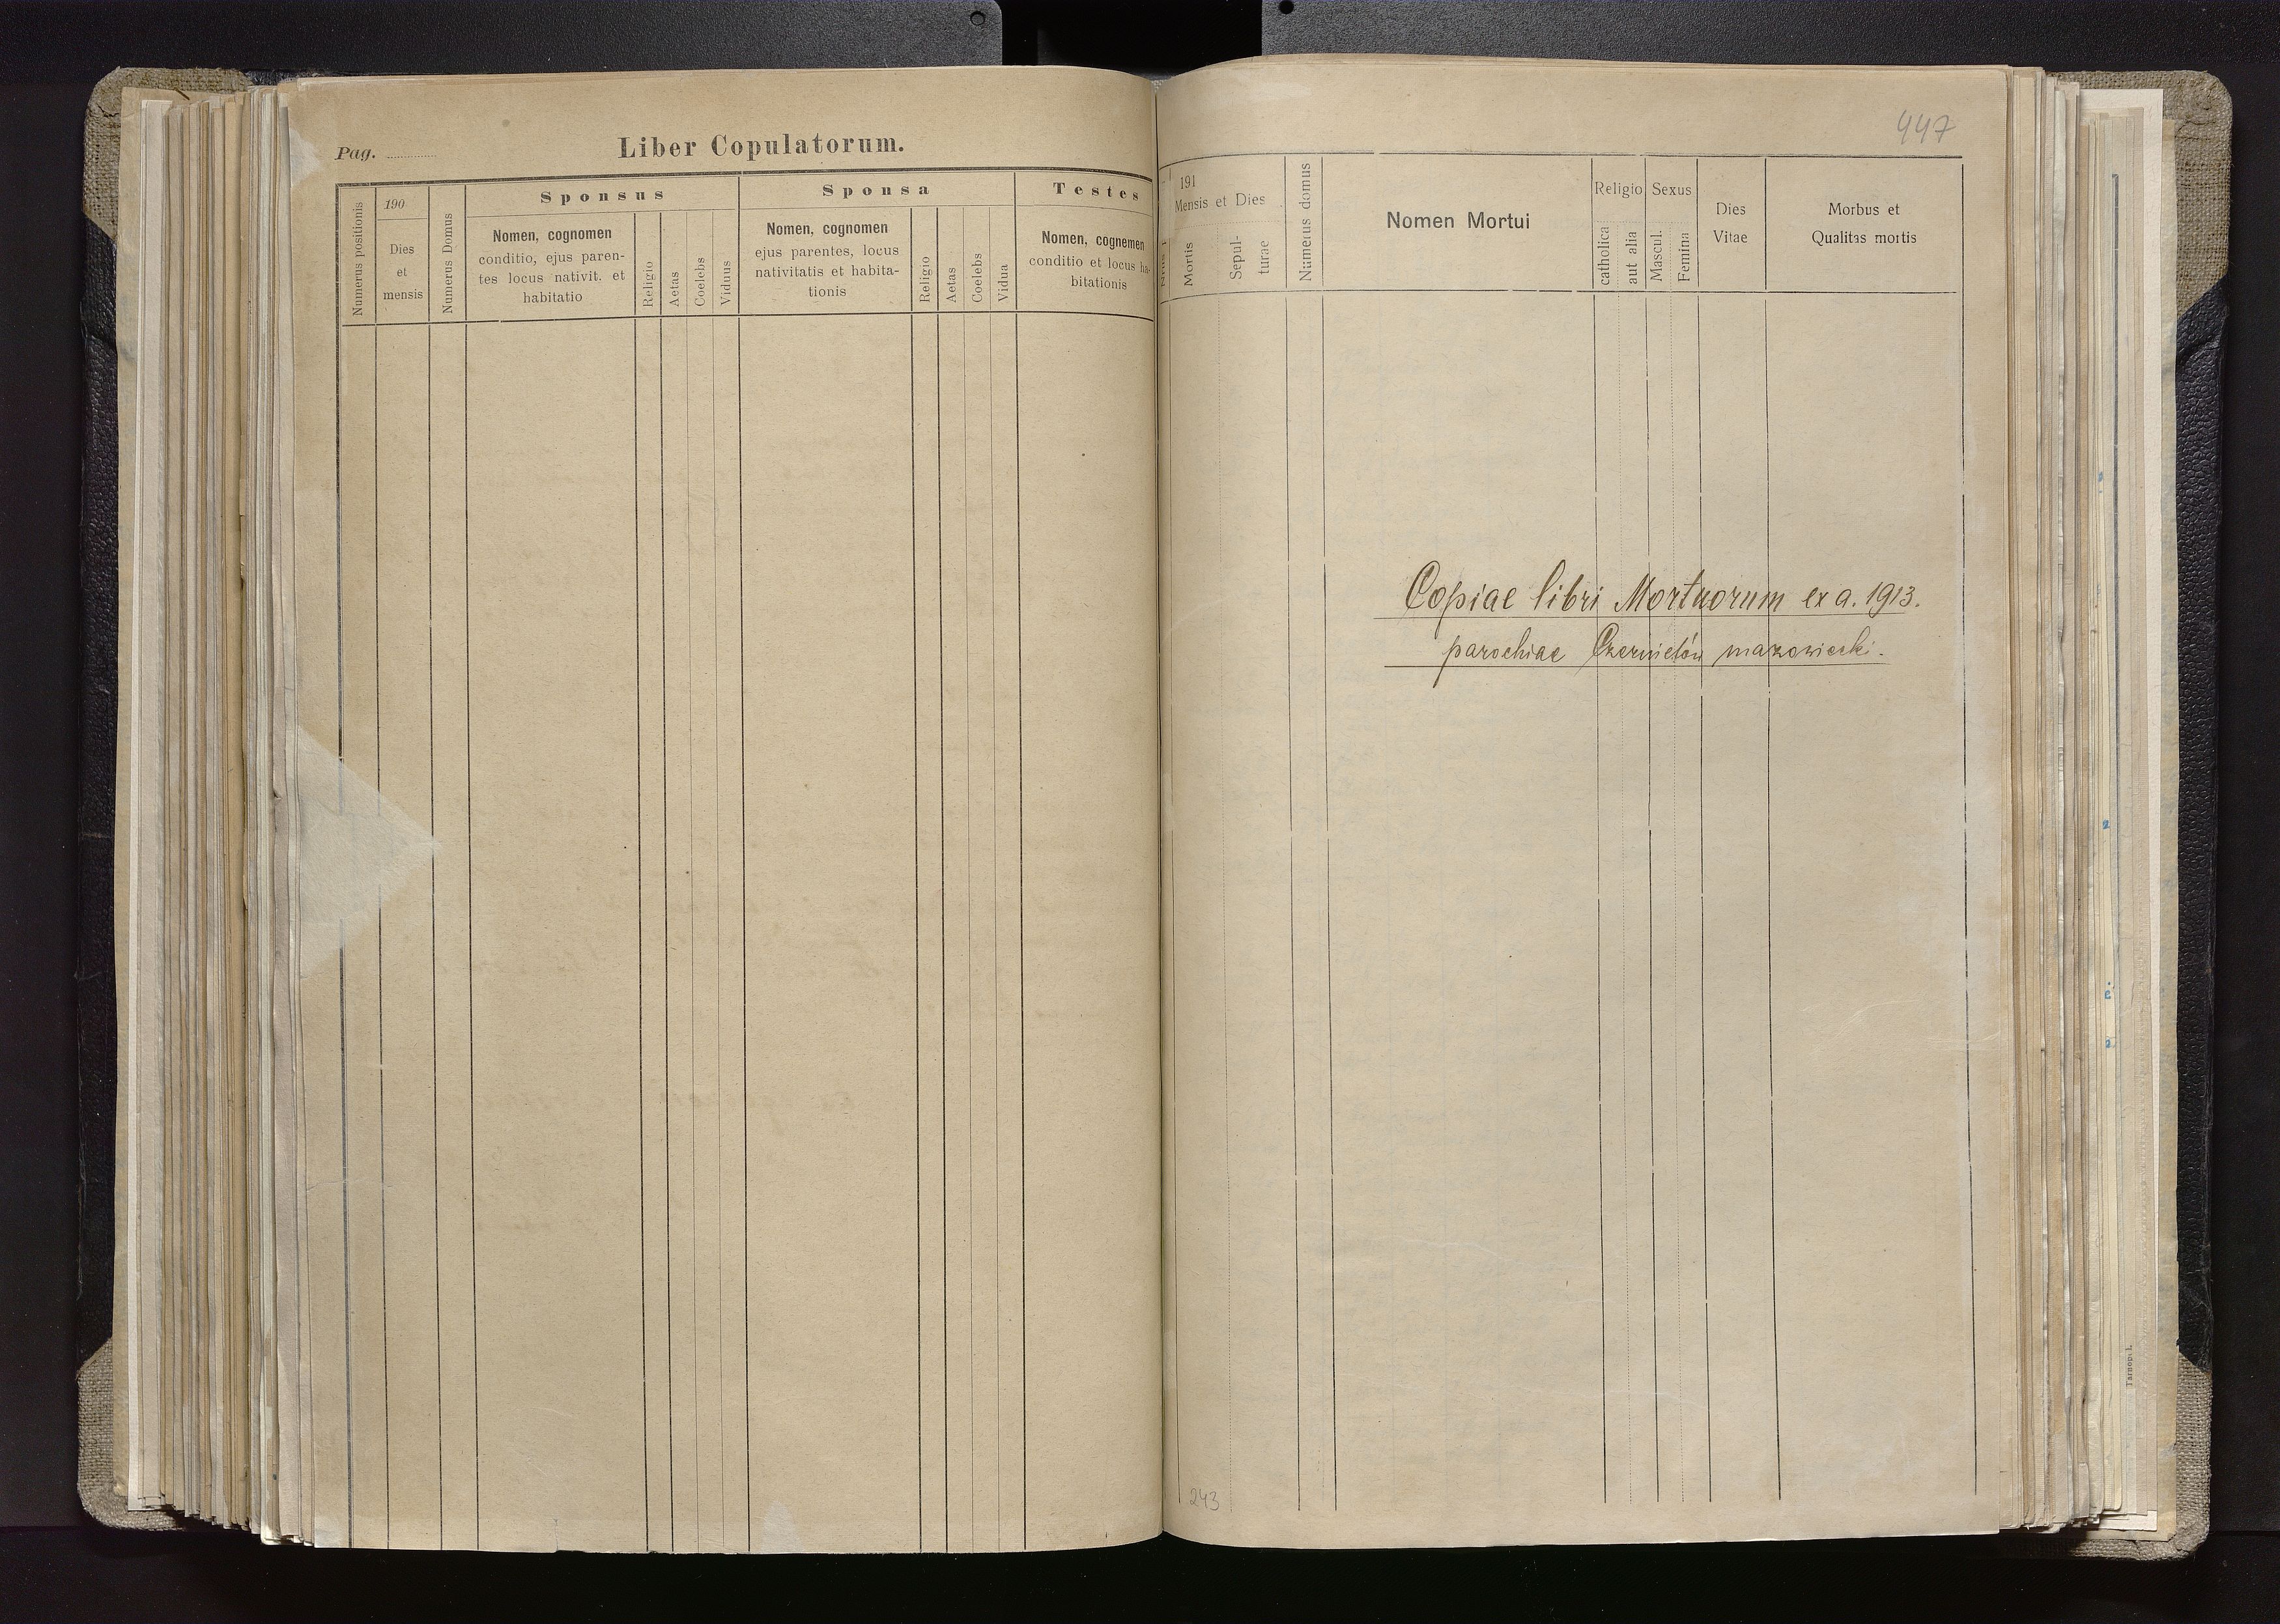 Pag.
Liber Copulatorum.
Numerus positionis
190
Dies
et
mensis
Numerus Domus
Sponsus
Nomen, cognomen
conditio, ejus paren-
tes locus nativit. et
habitatio
Religio
Aetas
Coelebs
Vidus
Sponsa
Nomen, cognomen
ejus parentes, locus
nativitatis et habita-
tionis
Religio
Aetas
Coelebs
Vidua
Testes
Nomen, cognemen
conditio et locus ha-
bitationis
447
191
Mensis et Dies
Mortis
Sepul-
turae
Numerus domus
Nomen Mortui
Religio
catholica
aut alia
Sexus
Mascul.
Femina
Dies
Vitae
Morbus et
Qualitas mortis
Copiae libri Mortuorum ex a. 1913.
parochiae Czernielów mazowiecki.
243